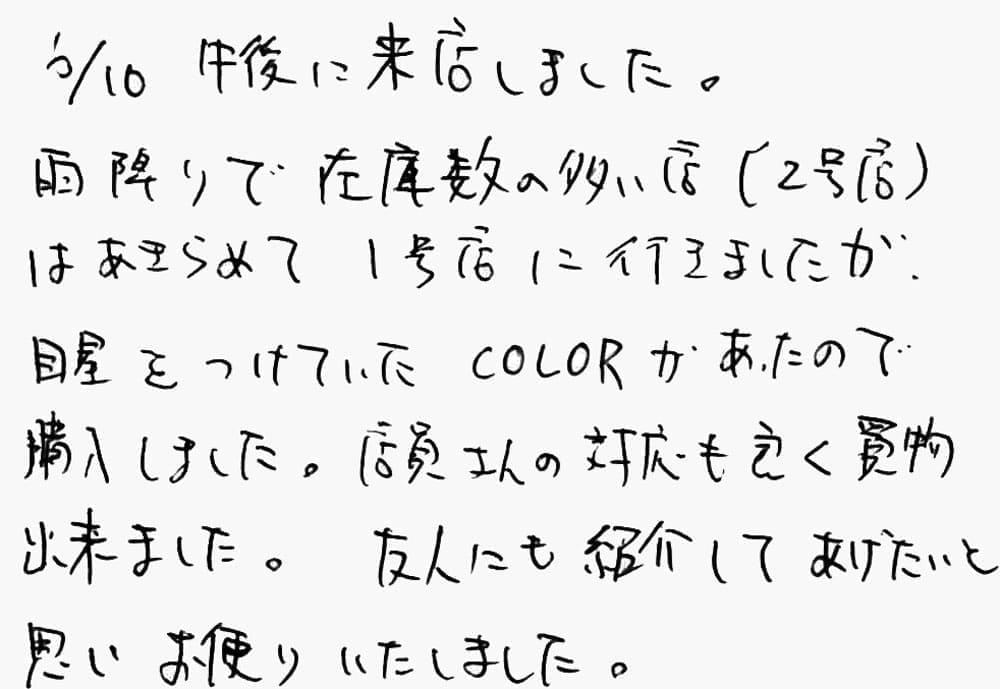 6/10 午後に来店しました。
雨降りで在庫数の多い店(2号店)
はあきらめて 1号店に行きましたが、
目星をつけていた COLORがあったので
購入しました。店員さんの対応も良く買物
出来ました。 友人にも紹介してあげたいと
思い お便りいたしました。